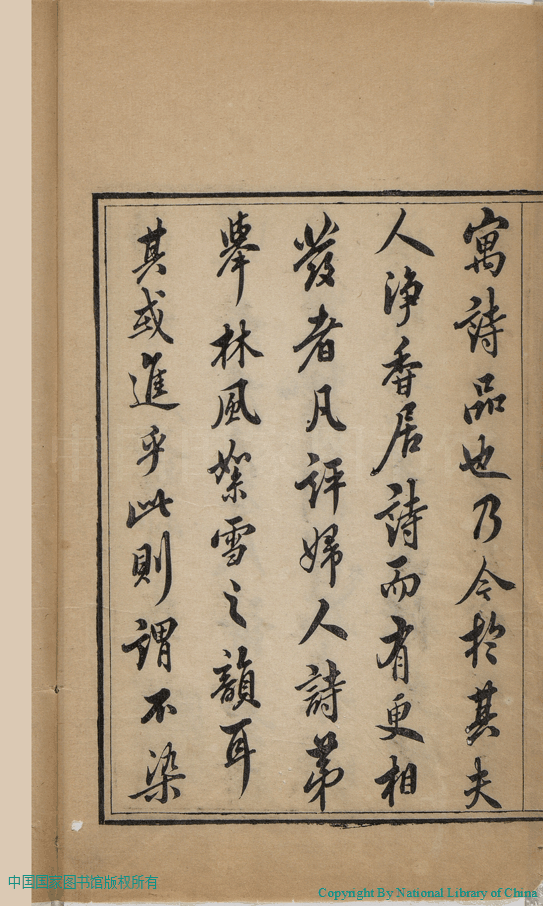 寓詩品也乃今於其夫
人淨香居詩而有更相
發者凡評婦人詩第
舉林風絮雪之韻耳
其或進乎此則謂不染
中国国家图书馆版权所有
Copyright By National Library of China